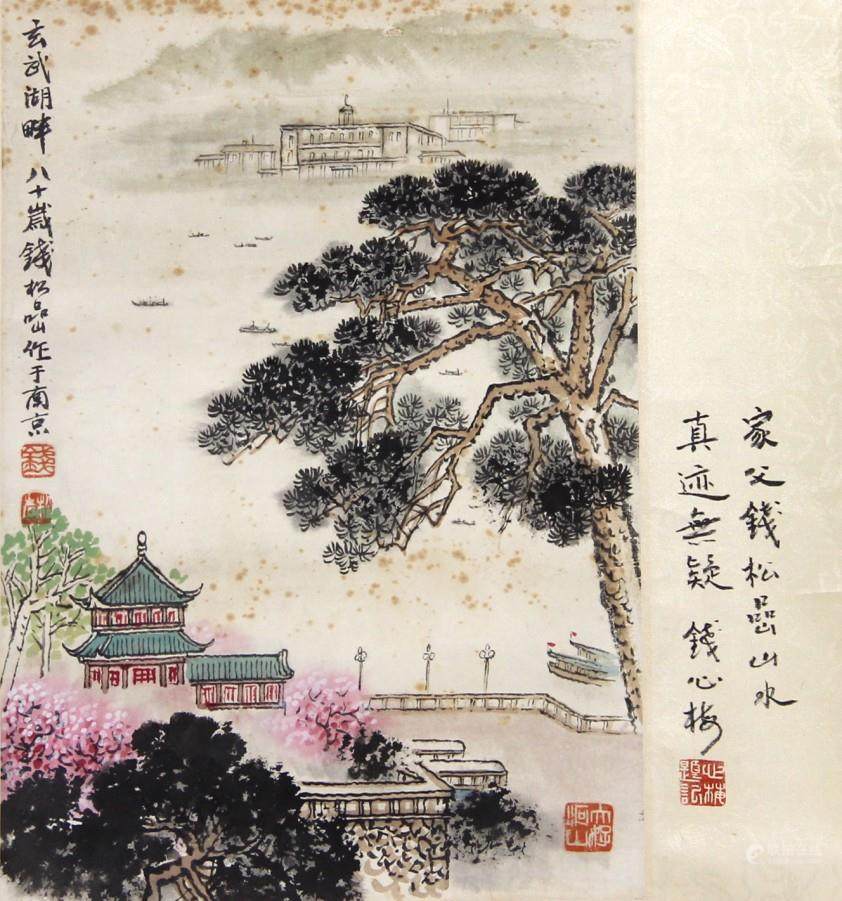 玄武湖畔 八十歲錢松喦作于南京
錢
家父錢松喦山水
真迹無疑 錢心梅
心梅題記
大好河山